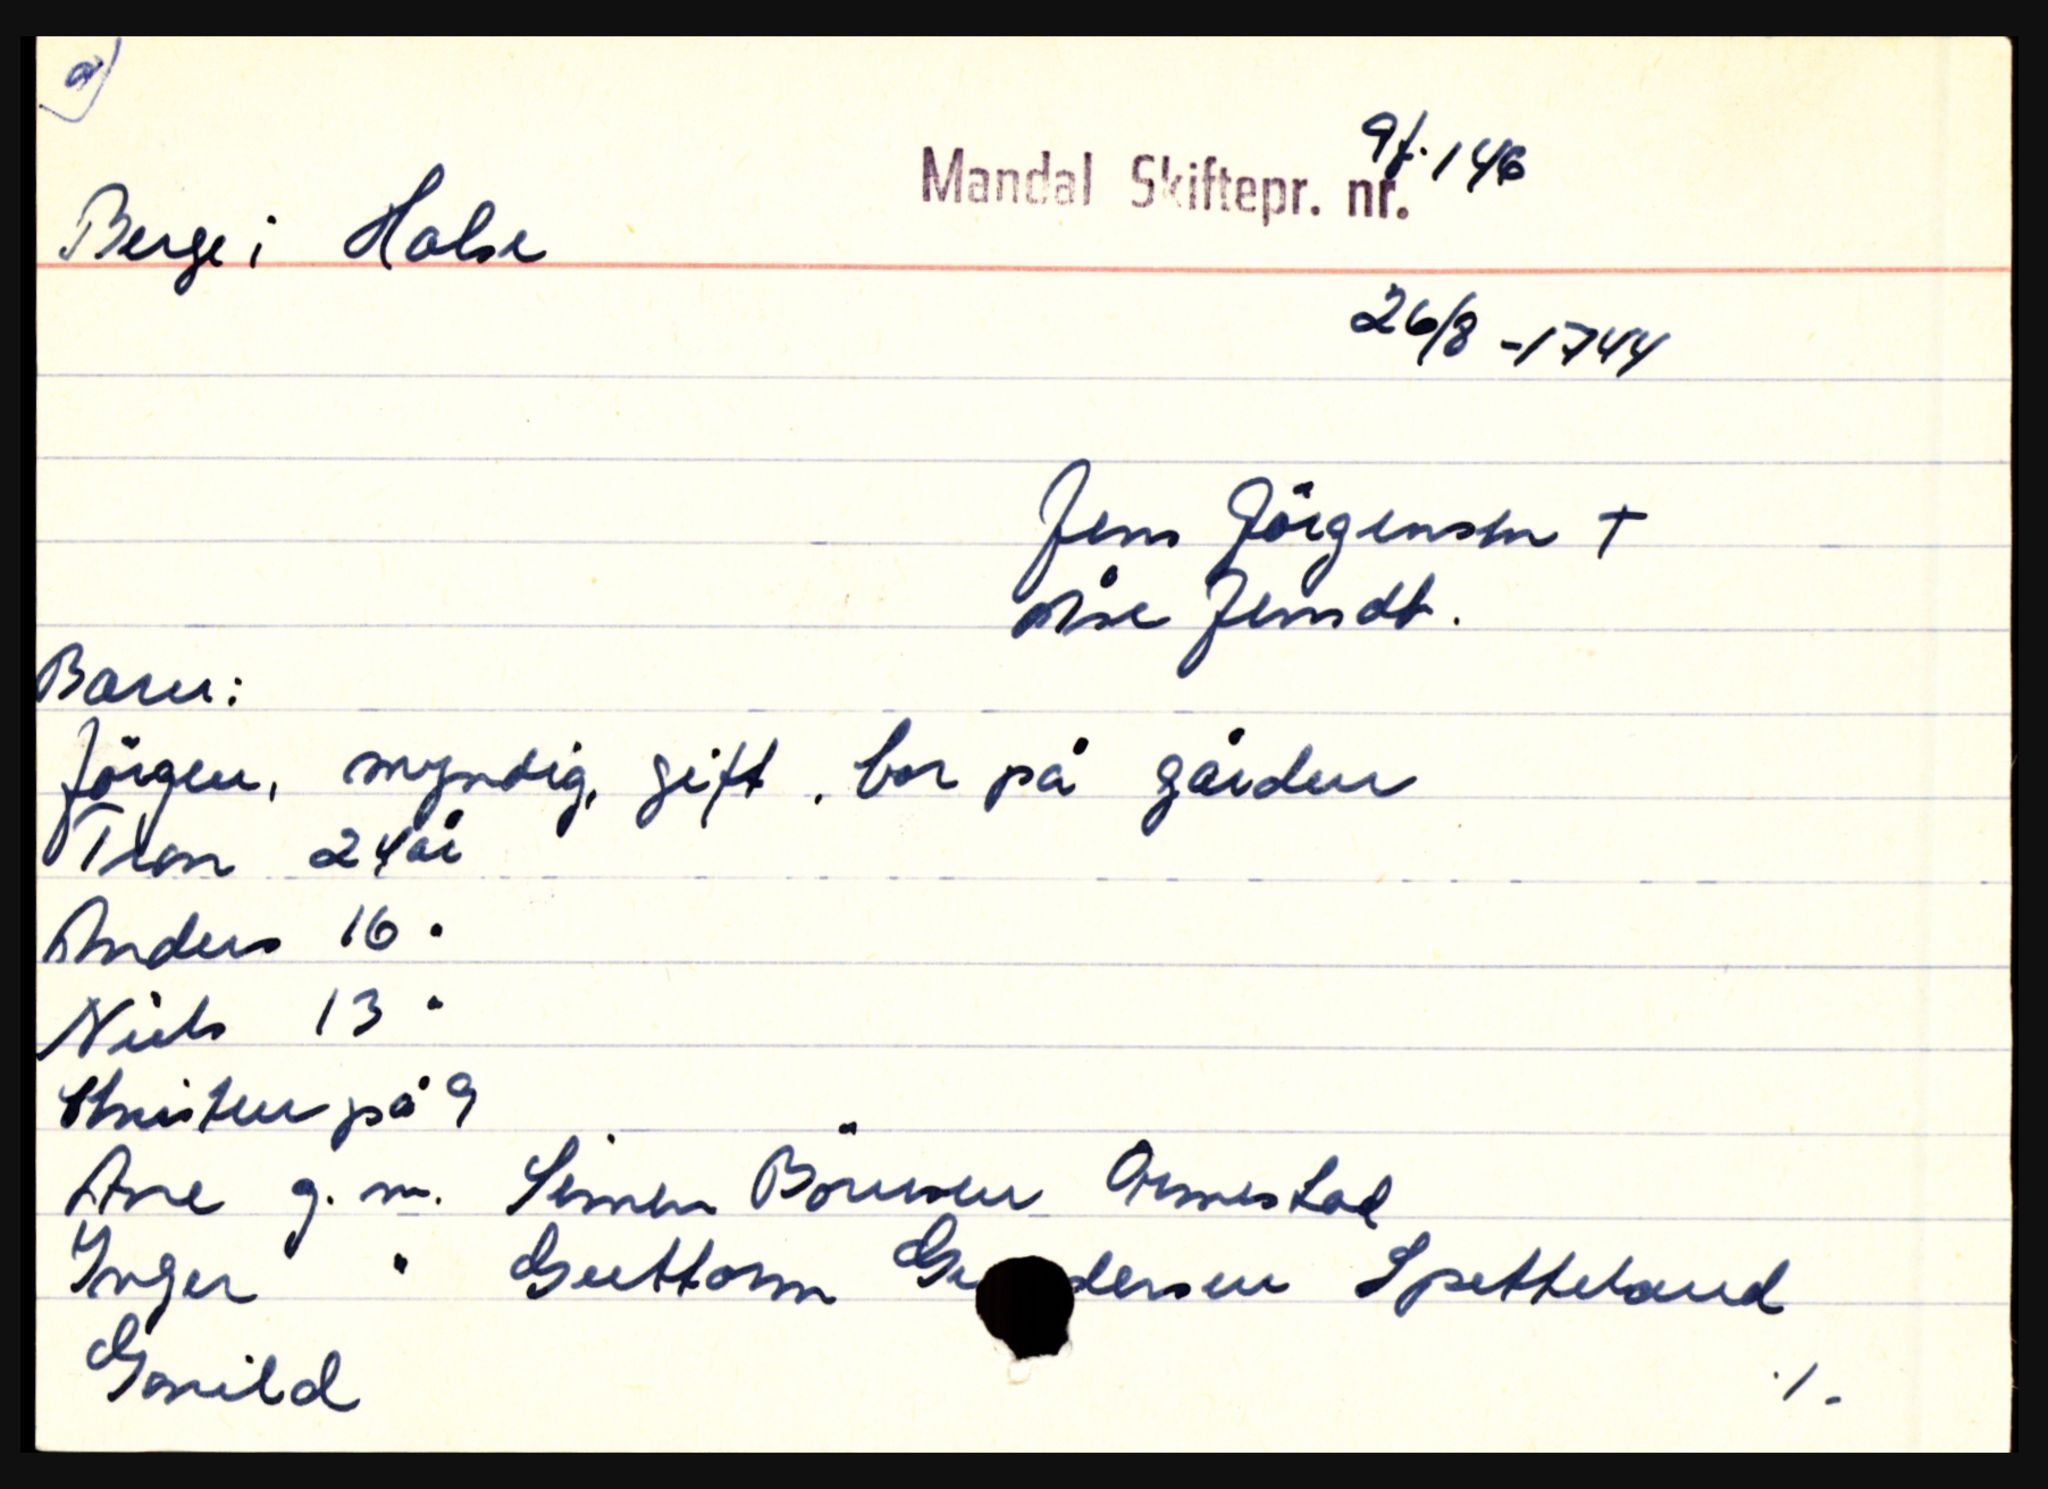 a)
9f. 146
Mandal Skiftepr. nr.
Berge i Halse
26/8 - 1744
Jens Jörgensen †
Åse Jensdt.
Barn:
Jörgen, myndig, gift, bor på gården
Tron 24 år
Anders 16 "
Niels 13 "
Christen på 9
Ane g. m. Simen Börresen Ormestad
Inger " Guttorm Gu dersen Spetteland
Gonild
./.